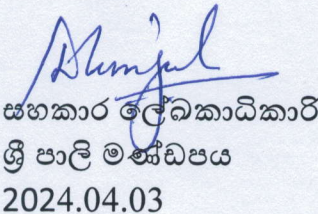 සහකාර ලේඛකාධිකාරි
ශ්‍රී පාලි මණ්ඩපය
2024.04.03